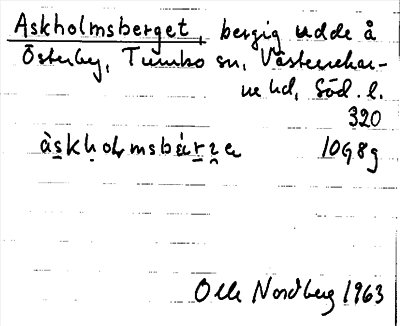 Askholmsberget, bergig udde å
Österby, Tumbo sn, Västerrekar-
ne hd, Söd. l.
320
àskholmsbárze 1098g
Olle Nordberg 1963